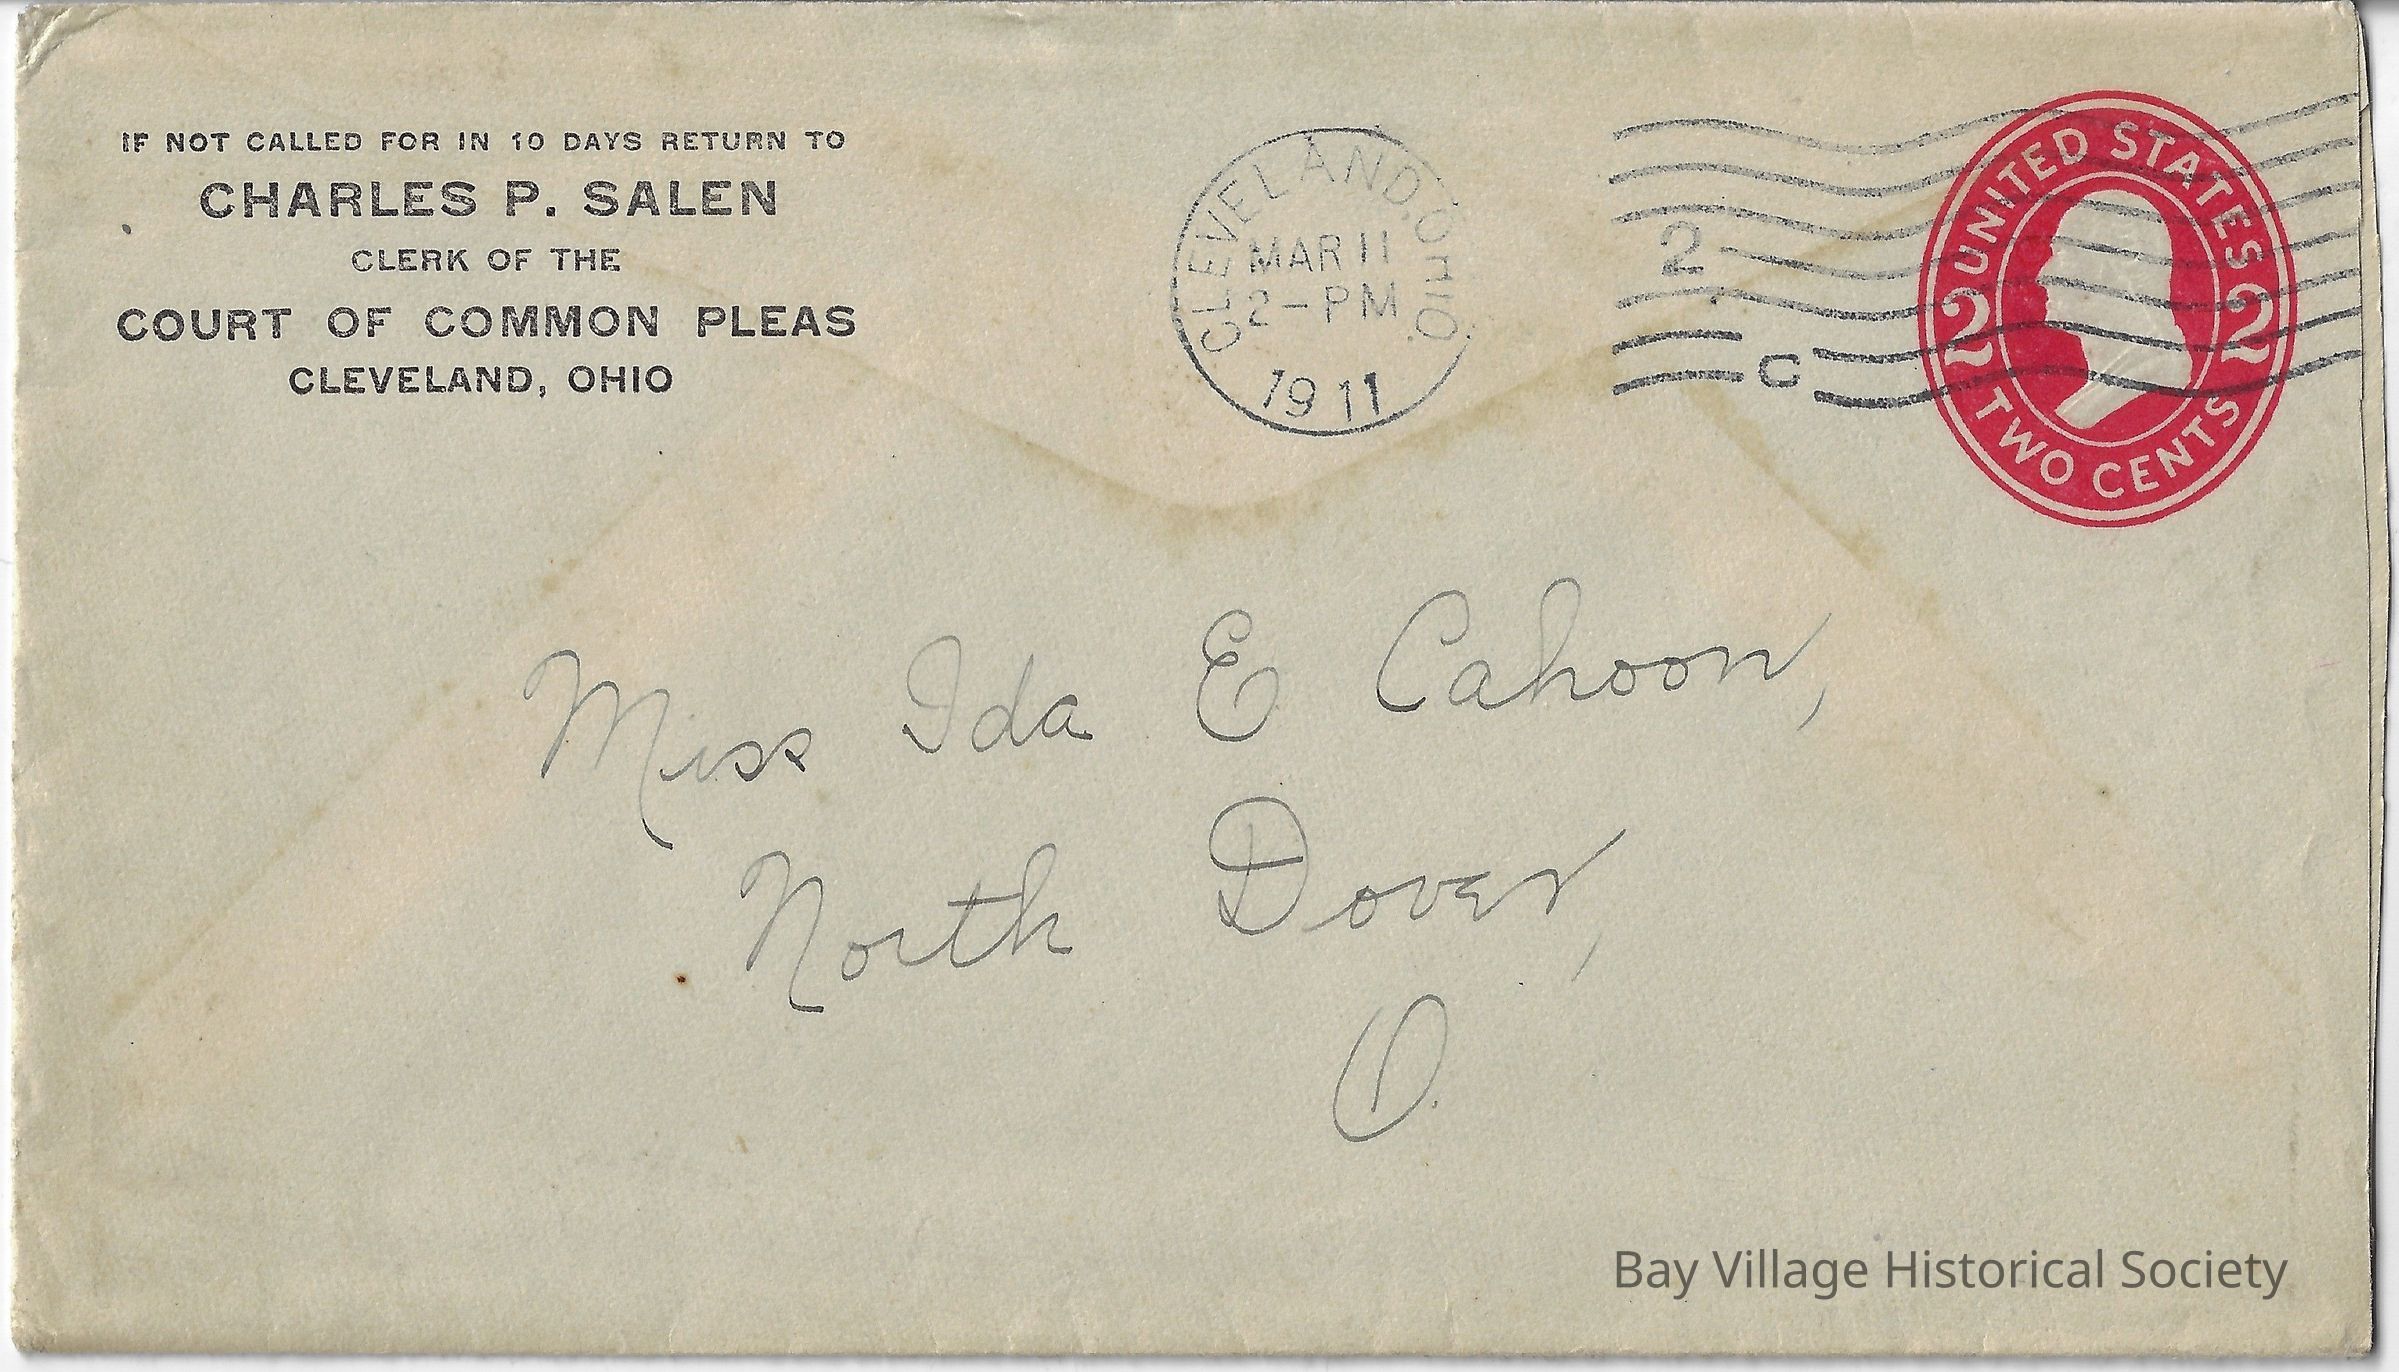 IF NOT CALLED FOR IN 10 DAYS RETURN TO
CHARLES P. SALEN
CLERK OF THE
COURT OF COMMON PLEAS
CLEVELAND, OHIO
CLEVELAND, OHIO.
MAR 11
2-PM
1911
2
C
UNITED STATES
2 2
TWO CENTS
Miss Ida E Cahoon,
North Dover,
O.
Bay Village Historical Society